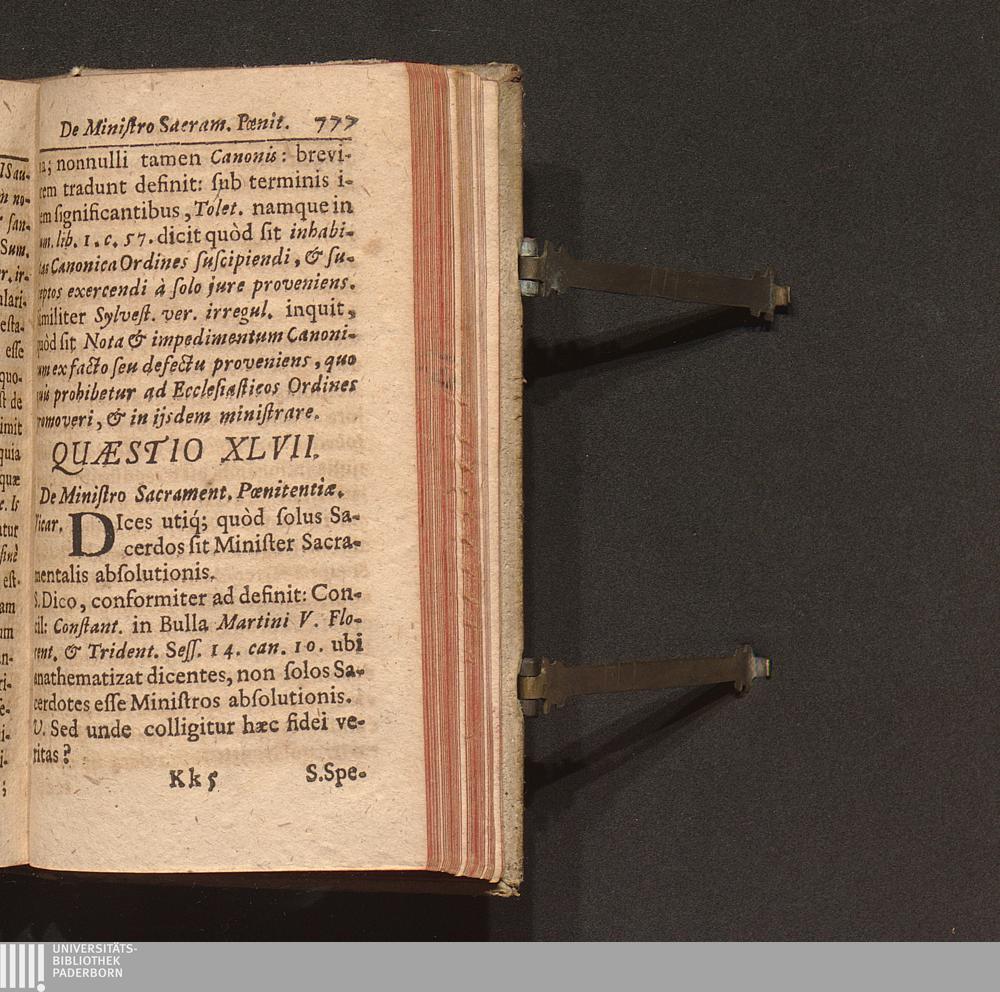 De Miniſtro Sacram. Pœnit. 777
na; nonnulli tamen Canonis: brevi-
rem tradunt definit: ſub terminis i-
em ſignificantibus, Tolet. namque in
um. lib. 1. c. 57. dicit quòd ſit inhabi-
tas Canonica Ordines ſuſcipiendi, & ſu-
eptos exercendi à ſolo jure proveniens.
imiliter Sylveſt. ver. irregul. inquit,
quòd ſit Nota & impedimentum Canoni-
um ex facto ſeu defectu proveniens, quo
quis prohibetur ad Eccleſiaſticos Ordines
romoveri, & in ijsdem miniſtrare.
QUÆSTIO XLVII.
De Miniſtro Sacrament. Pœnitentiæ.
Vicar. DIces utiq́; quòd ſolus Sa-
cerdos ſit Miniſter Sacra-
mentalis abſolutionis.
S. Dico, conformiter ad definit: Con-
cil: Conſtant. in Bulla Martini V. Flo-
rent. & Trident. Seſſ. 14. can. 10. ubi
anathematizat dicentes, non ſolos Sa-
cerdotes eſſe Miniſtros abſolutionis.
V. Sed unde colligitur hæc fidei ve-
ritas?
Kk5 S. Spe-
UNIVERSITÄTS-
BIBLIOTHEK
PADERBORN